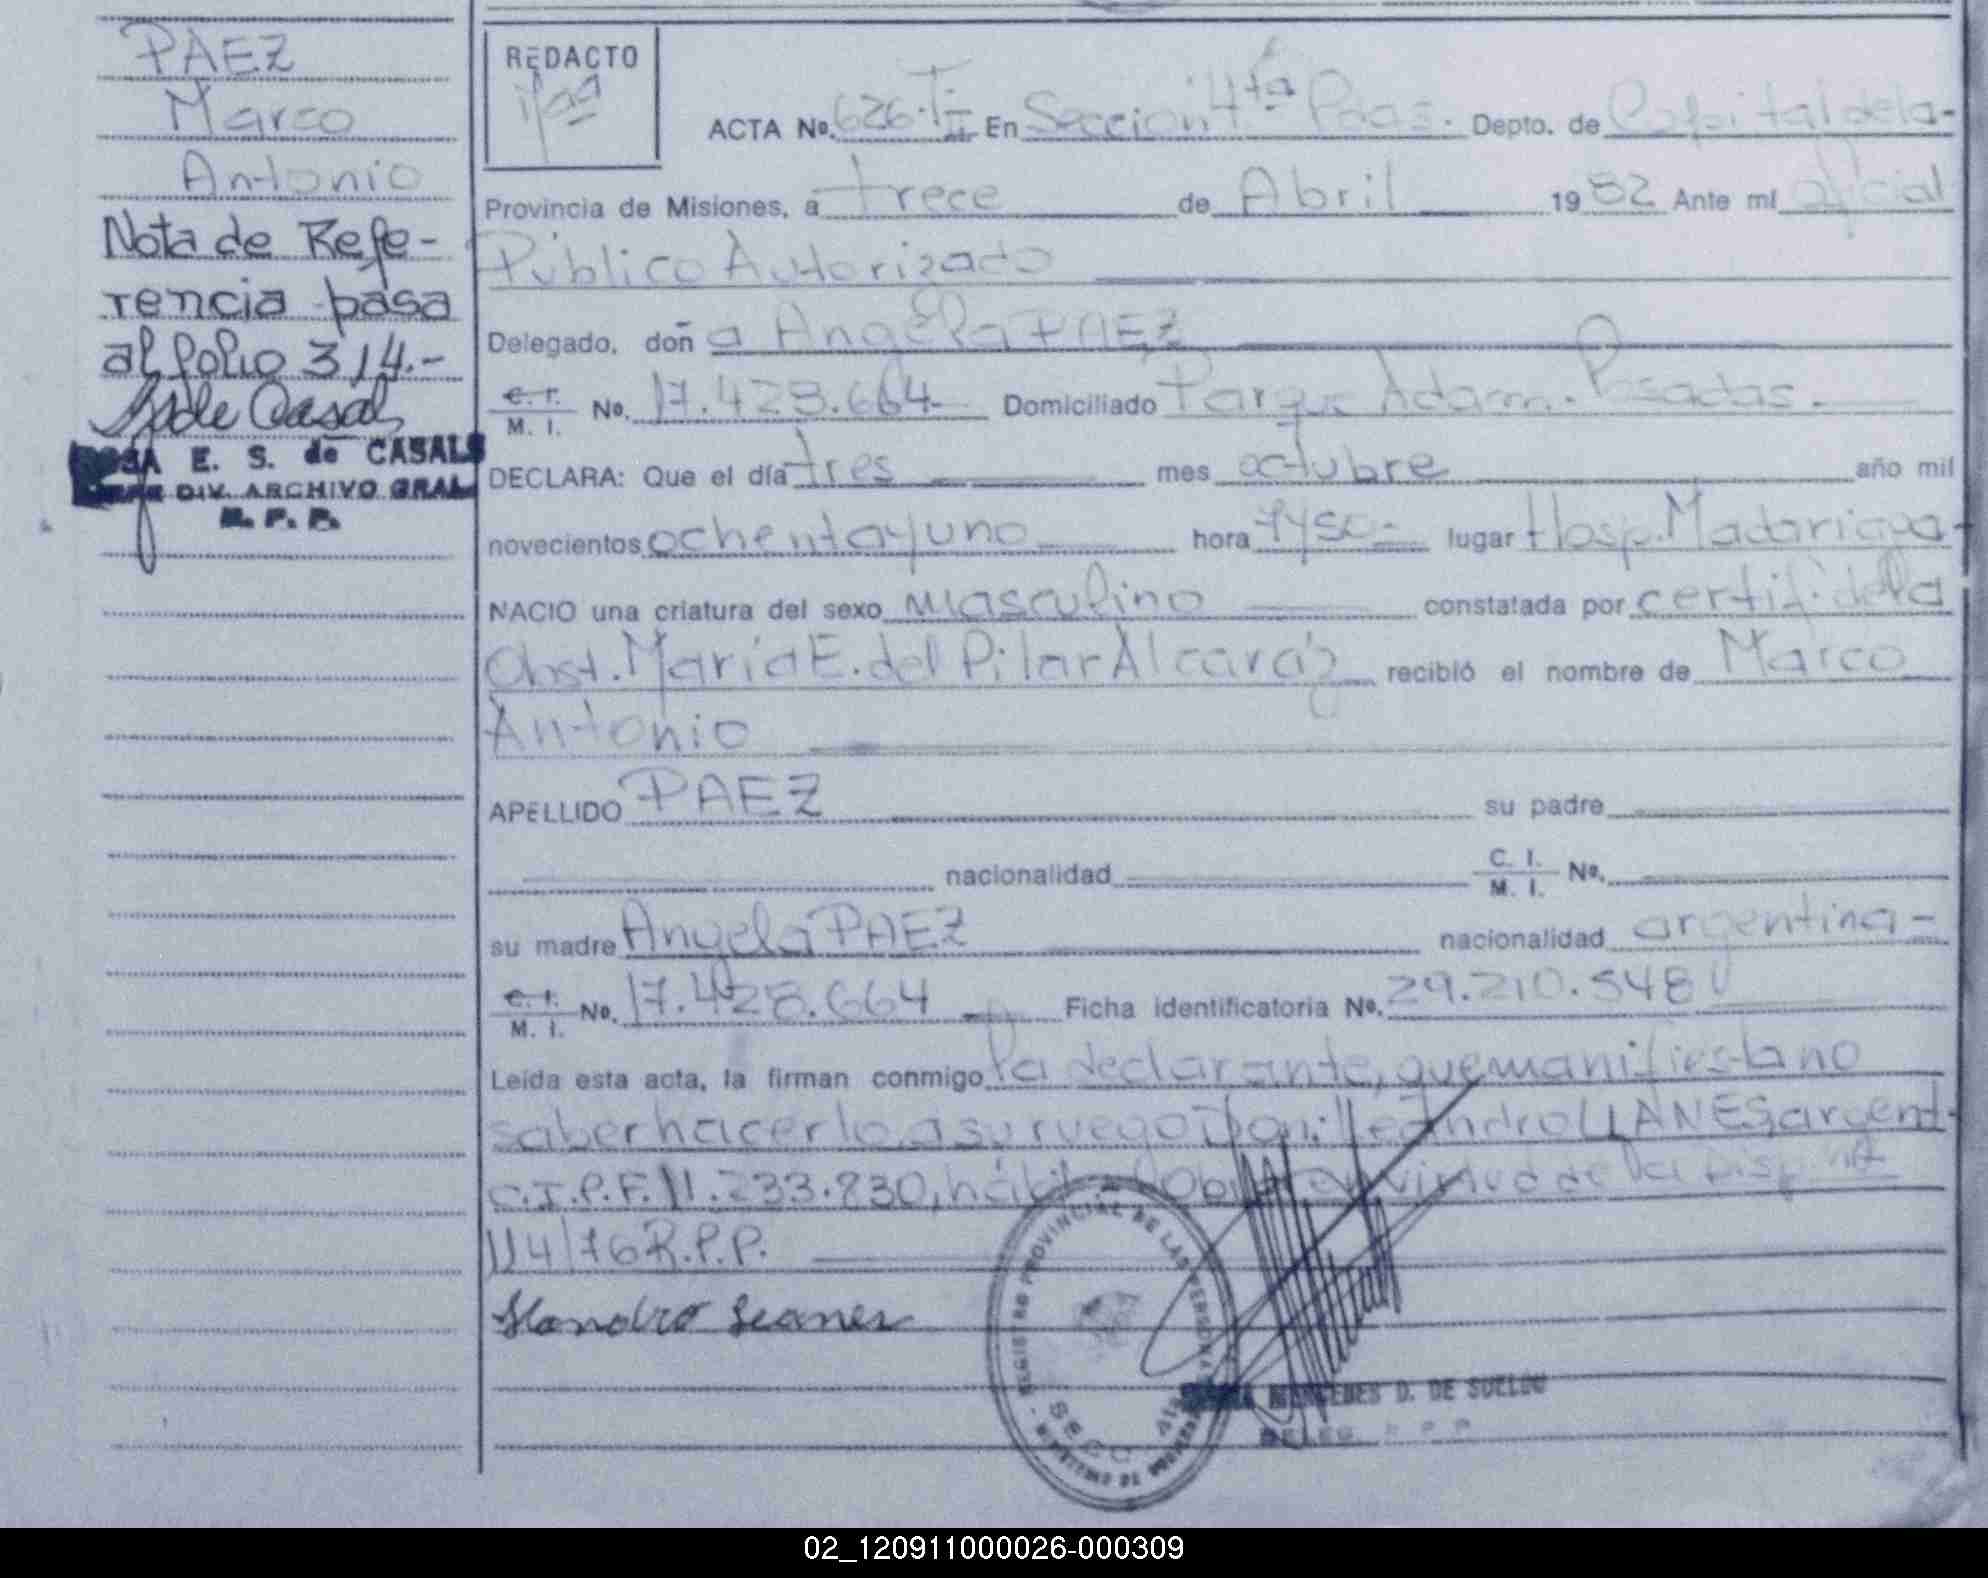 PAEZ
Marco
Antonio
Nota de Refe-
rencia pasa
al folio 314.-
E. S. de CASALS
DIV. ARCHIVO GRAL.
R. P. P.
REDACTO
ACTA Nº. 626.TII En Seccion 4ta Pdas. Depto. de Capital de la-
Provincia de Misiones, a trece de Abril 1982 Ante mí oficial
Público Autorizado
Delegado, doña Angela PAEZ
C. I. M. I. Nº. 17.428.664- Domiciliado Parque Adam. Posadas.-
DECLARA: Que el día tres mes octubre año mil
novecientos ochenta y uno hora 7y50- lugar Hosp. Madariaga-
NACIO una criatura del sexo masculino constatada por certif. de la
Obst. María E. del Pilar Alcaráz recibió el nombre de Marco
Antonio
APELLIDO PAEZ su padre
nacionalidad C. I. M. I. Nº.
su madre Angela PAEZ nacionalidad argentina-
C. I. M. I. Nº. 17.428.664 Ficha identificatoria Nº. 29.210.548
Leída esta acta, la firman conmigo la declarante, que manifiesta no
saber hacerlo a su ruego Don: Leandro LLANES, argent.
C.I.P.F. 11.233.830, hábil en virtud de la Disp. nº
114/76 R.P.P.
REGISTRO PROVINCIAL DE LAS PERSONAS
MERCEDES D. DE SUELDO
DELEG. R. P. P.
02_120911000026-000309